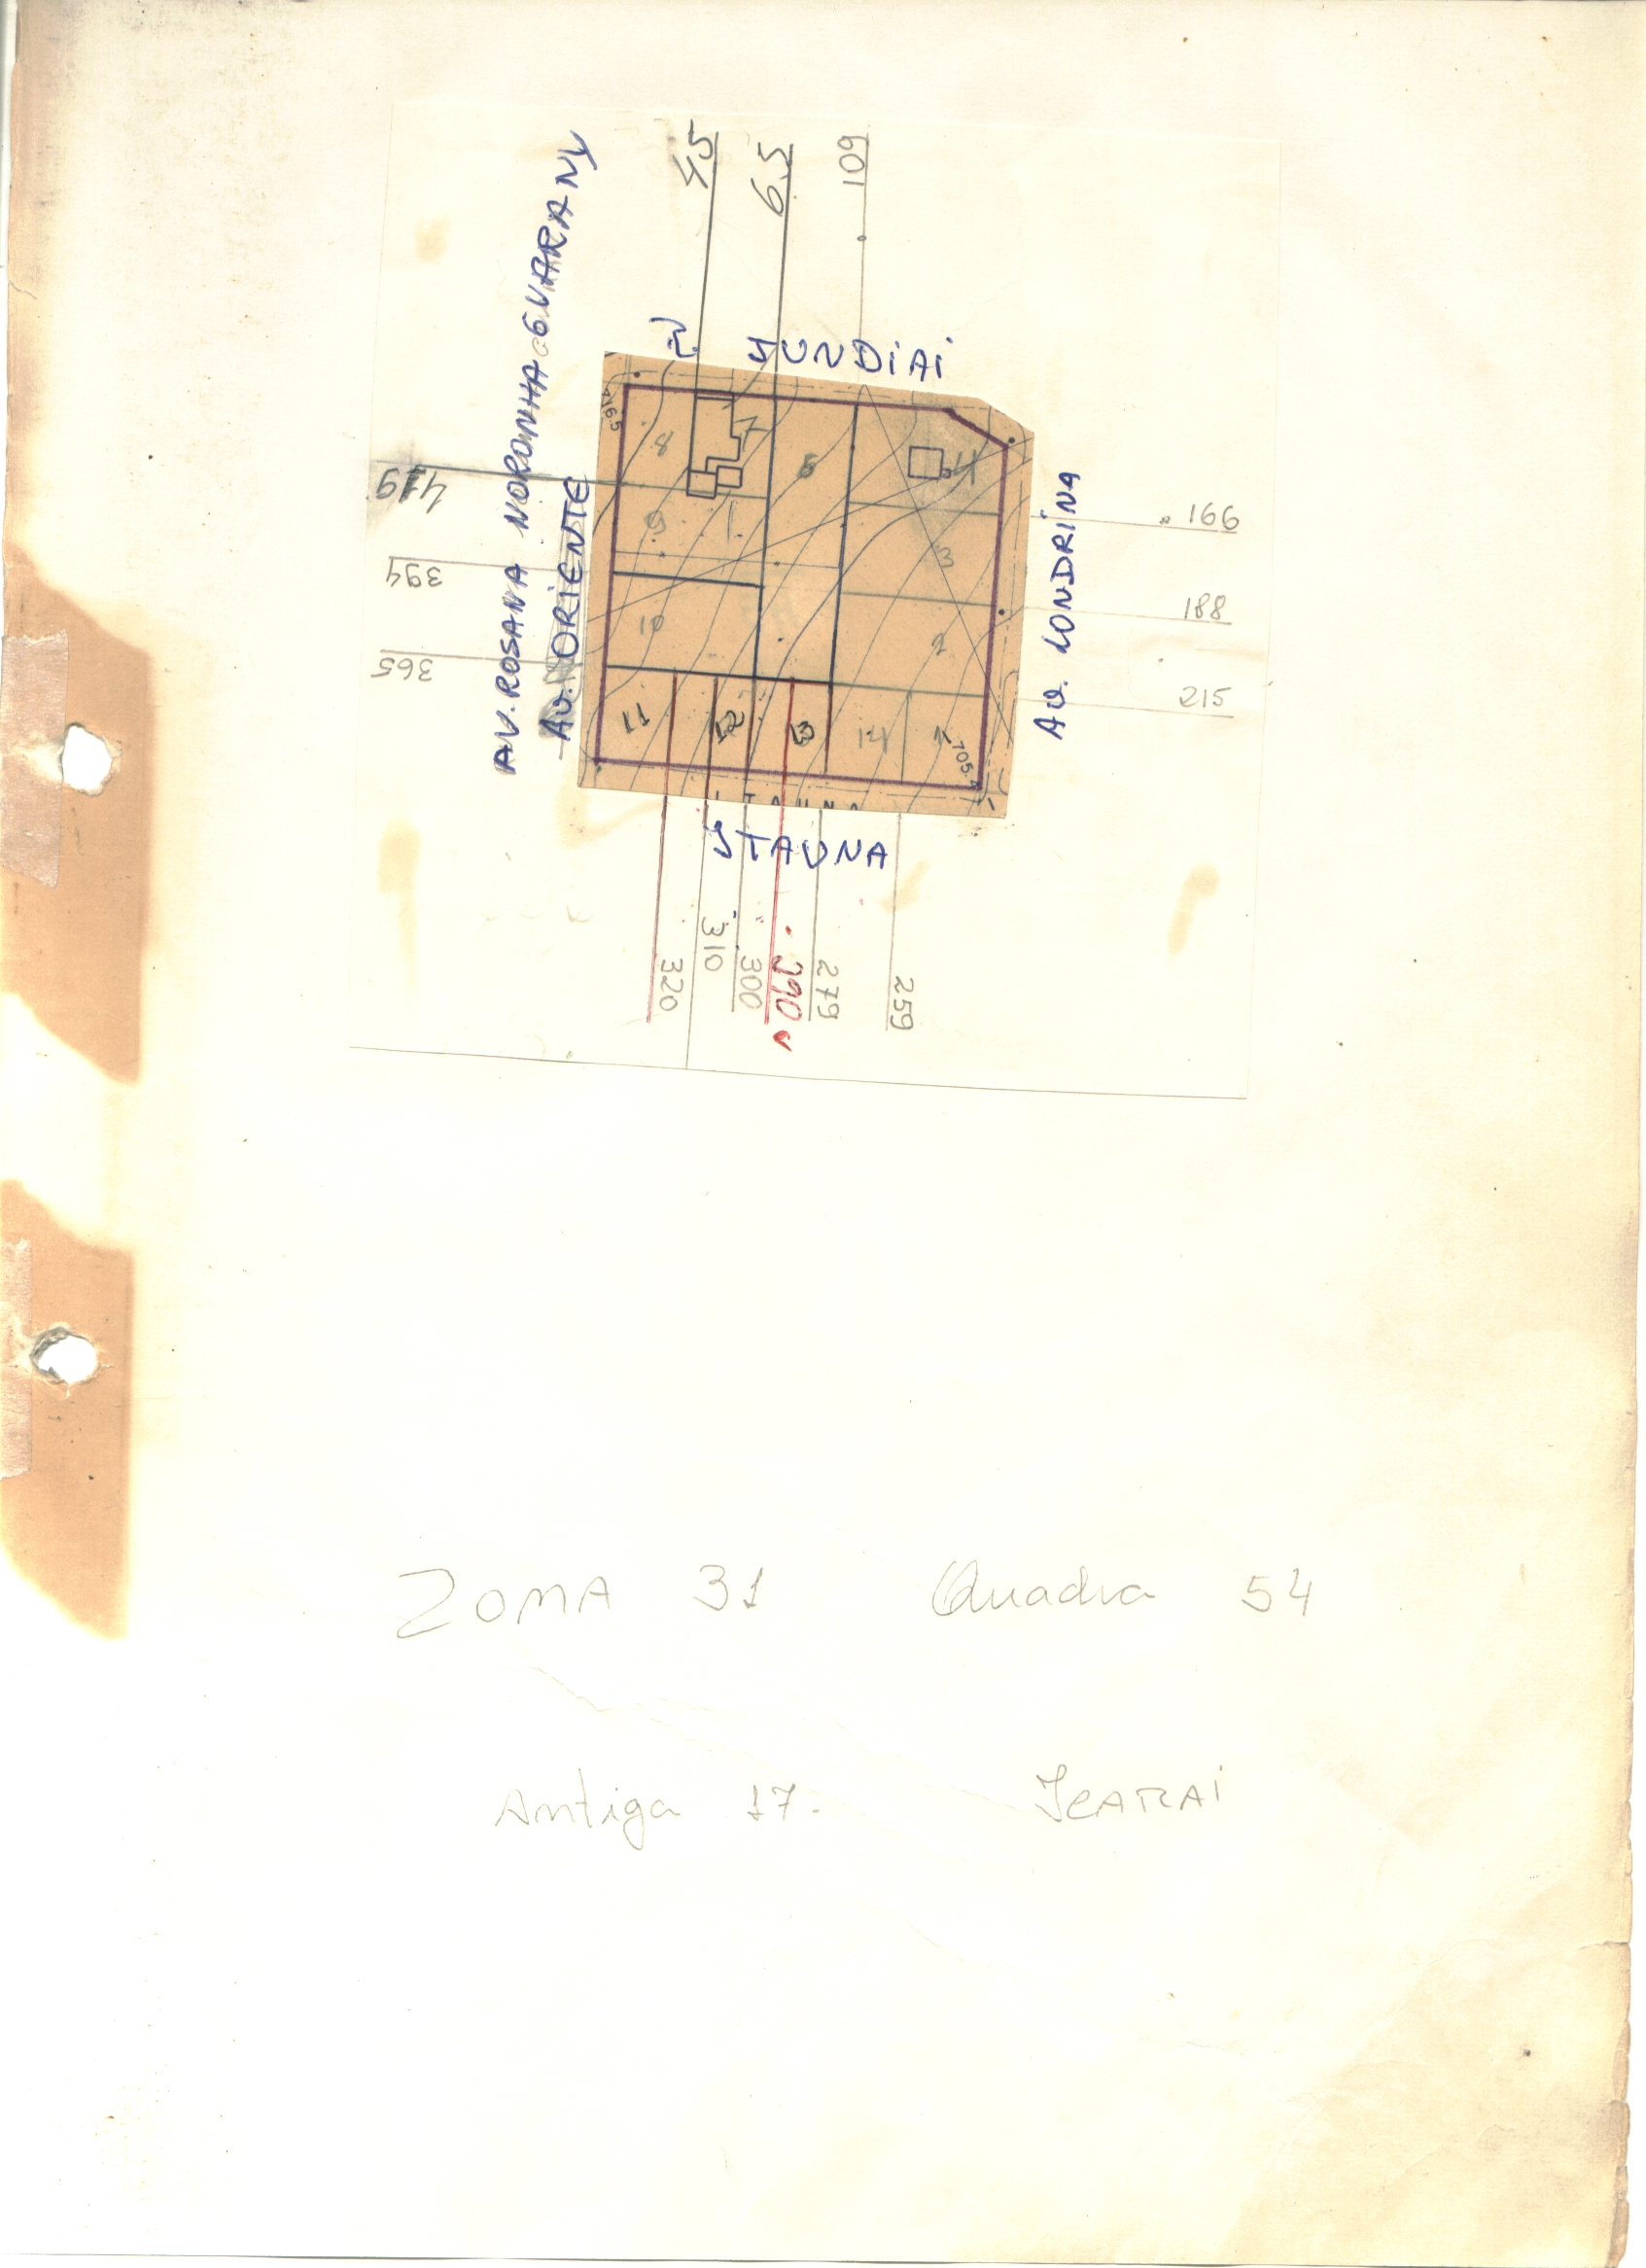 45
65
109
R. JUNDIAI
AV. ROSANA NORONHA GUARANY
AV. ORIENTE
419
394
365
AV. LONDRINA
166
188
215
8
7
9
4
6
3
10
2
11
12
13
14
1
705
ITAUNA
ITAUNA
320
310
300
290
279
259
ZONA 31 Quadra 54
Antiga 17. ICARAI